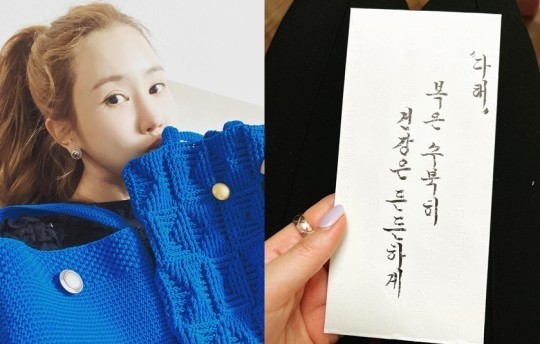 '다해'
복은 수북히
건강은 든든하게